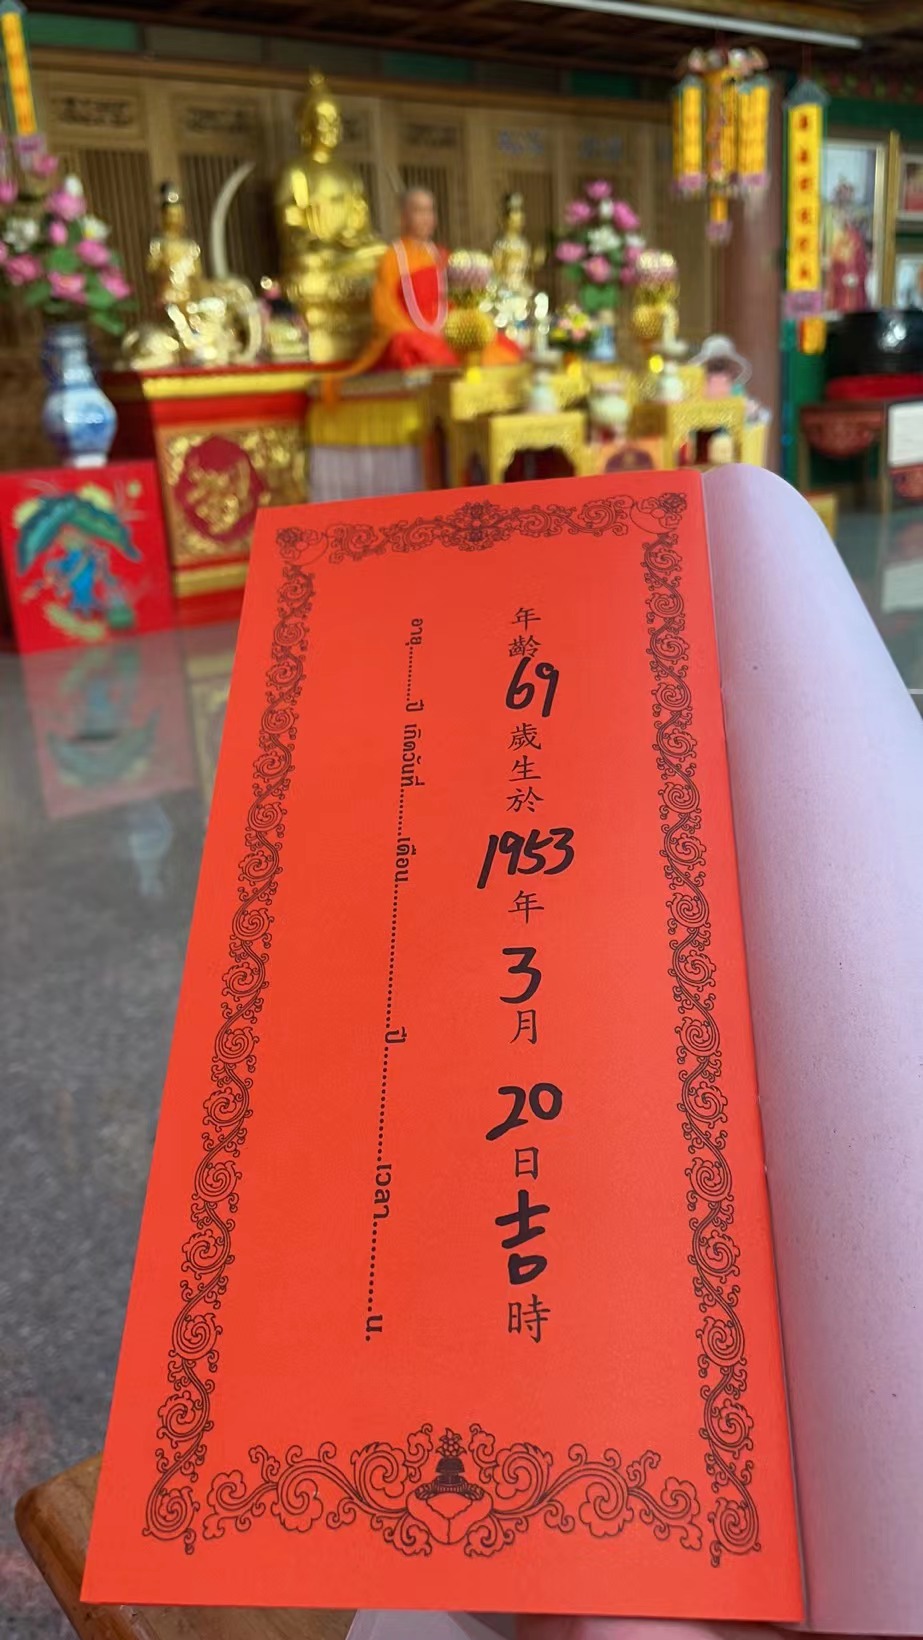 年齡69歲生於1953年3月20日吉時
อายุ..........ปี เกิดวันที่..........เดือน..............................ปี......................เวลา..............น.